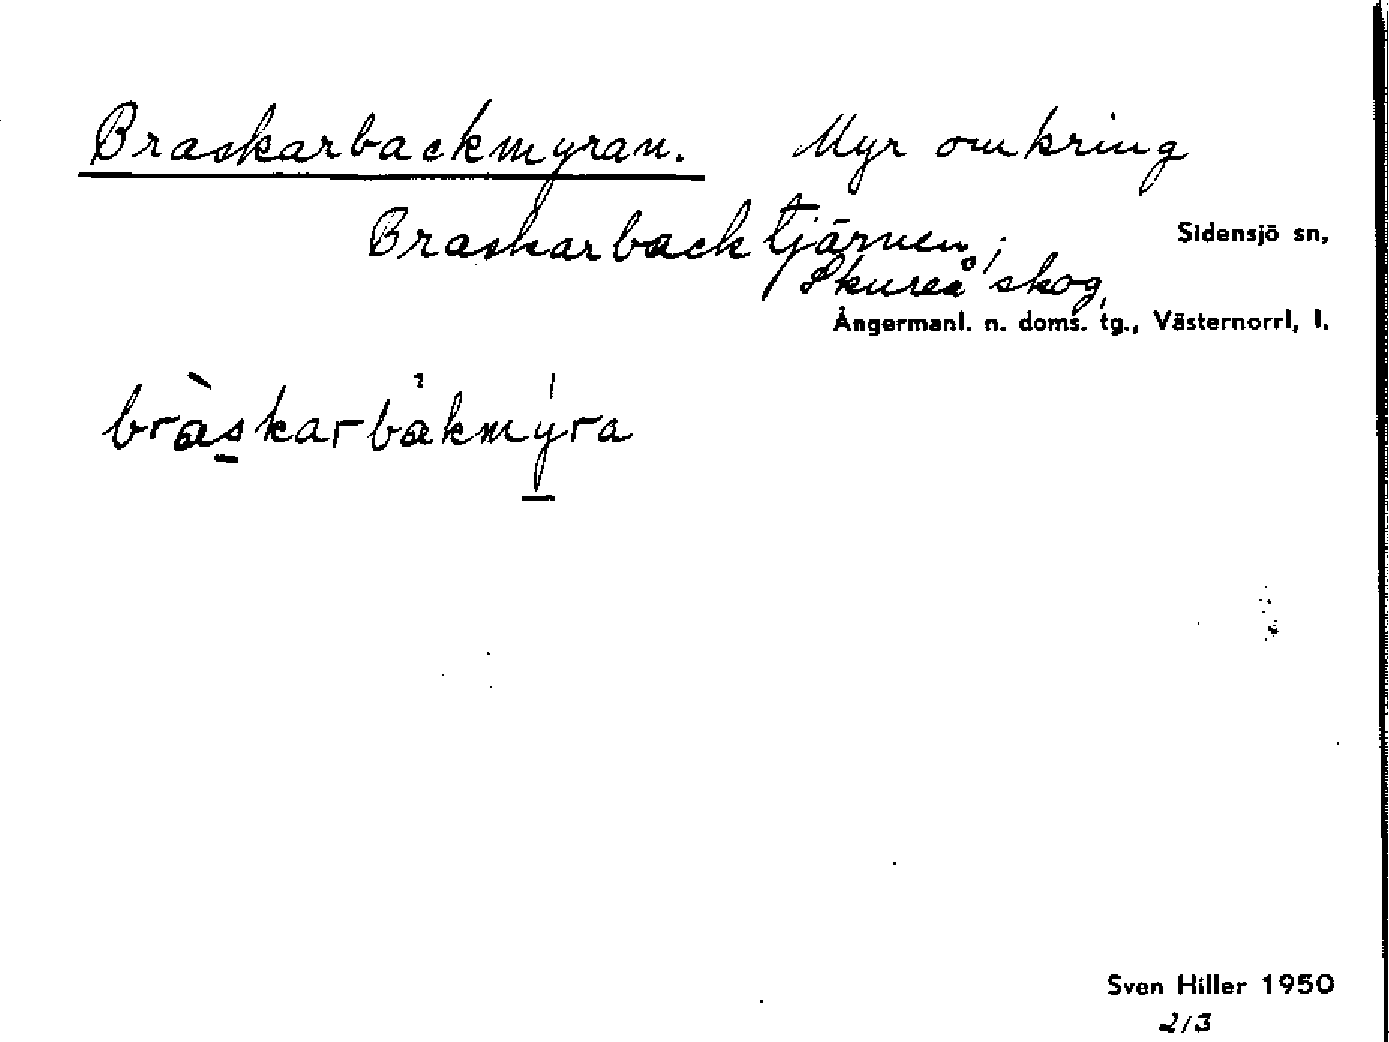 Braskarbackmyran. Myr omkring
Braskarbacktjärnen,
Sidensjö sn,
Skureå skog
Ångermanl. n. doms. tg., Västernorrl. l.
bràskarbakmyra
Sven Hiller 1950
2/3